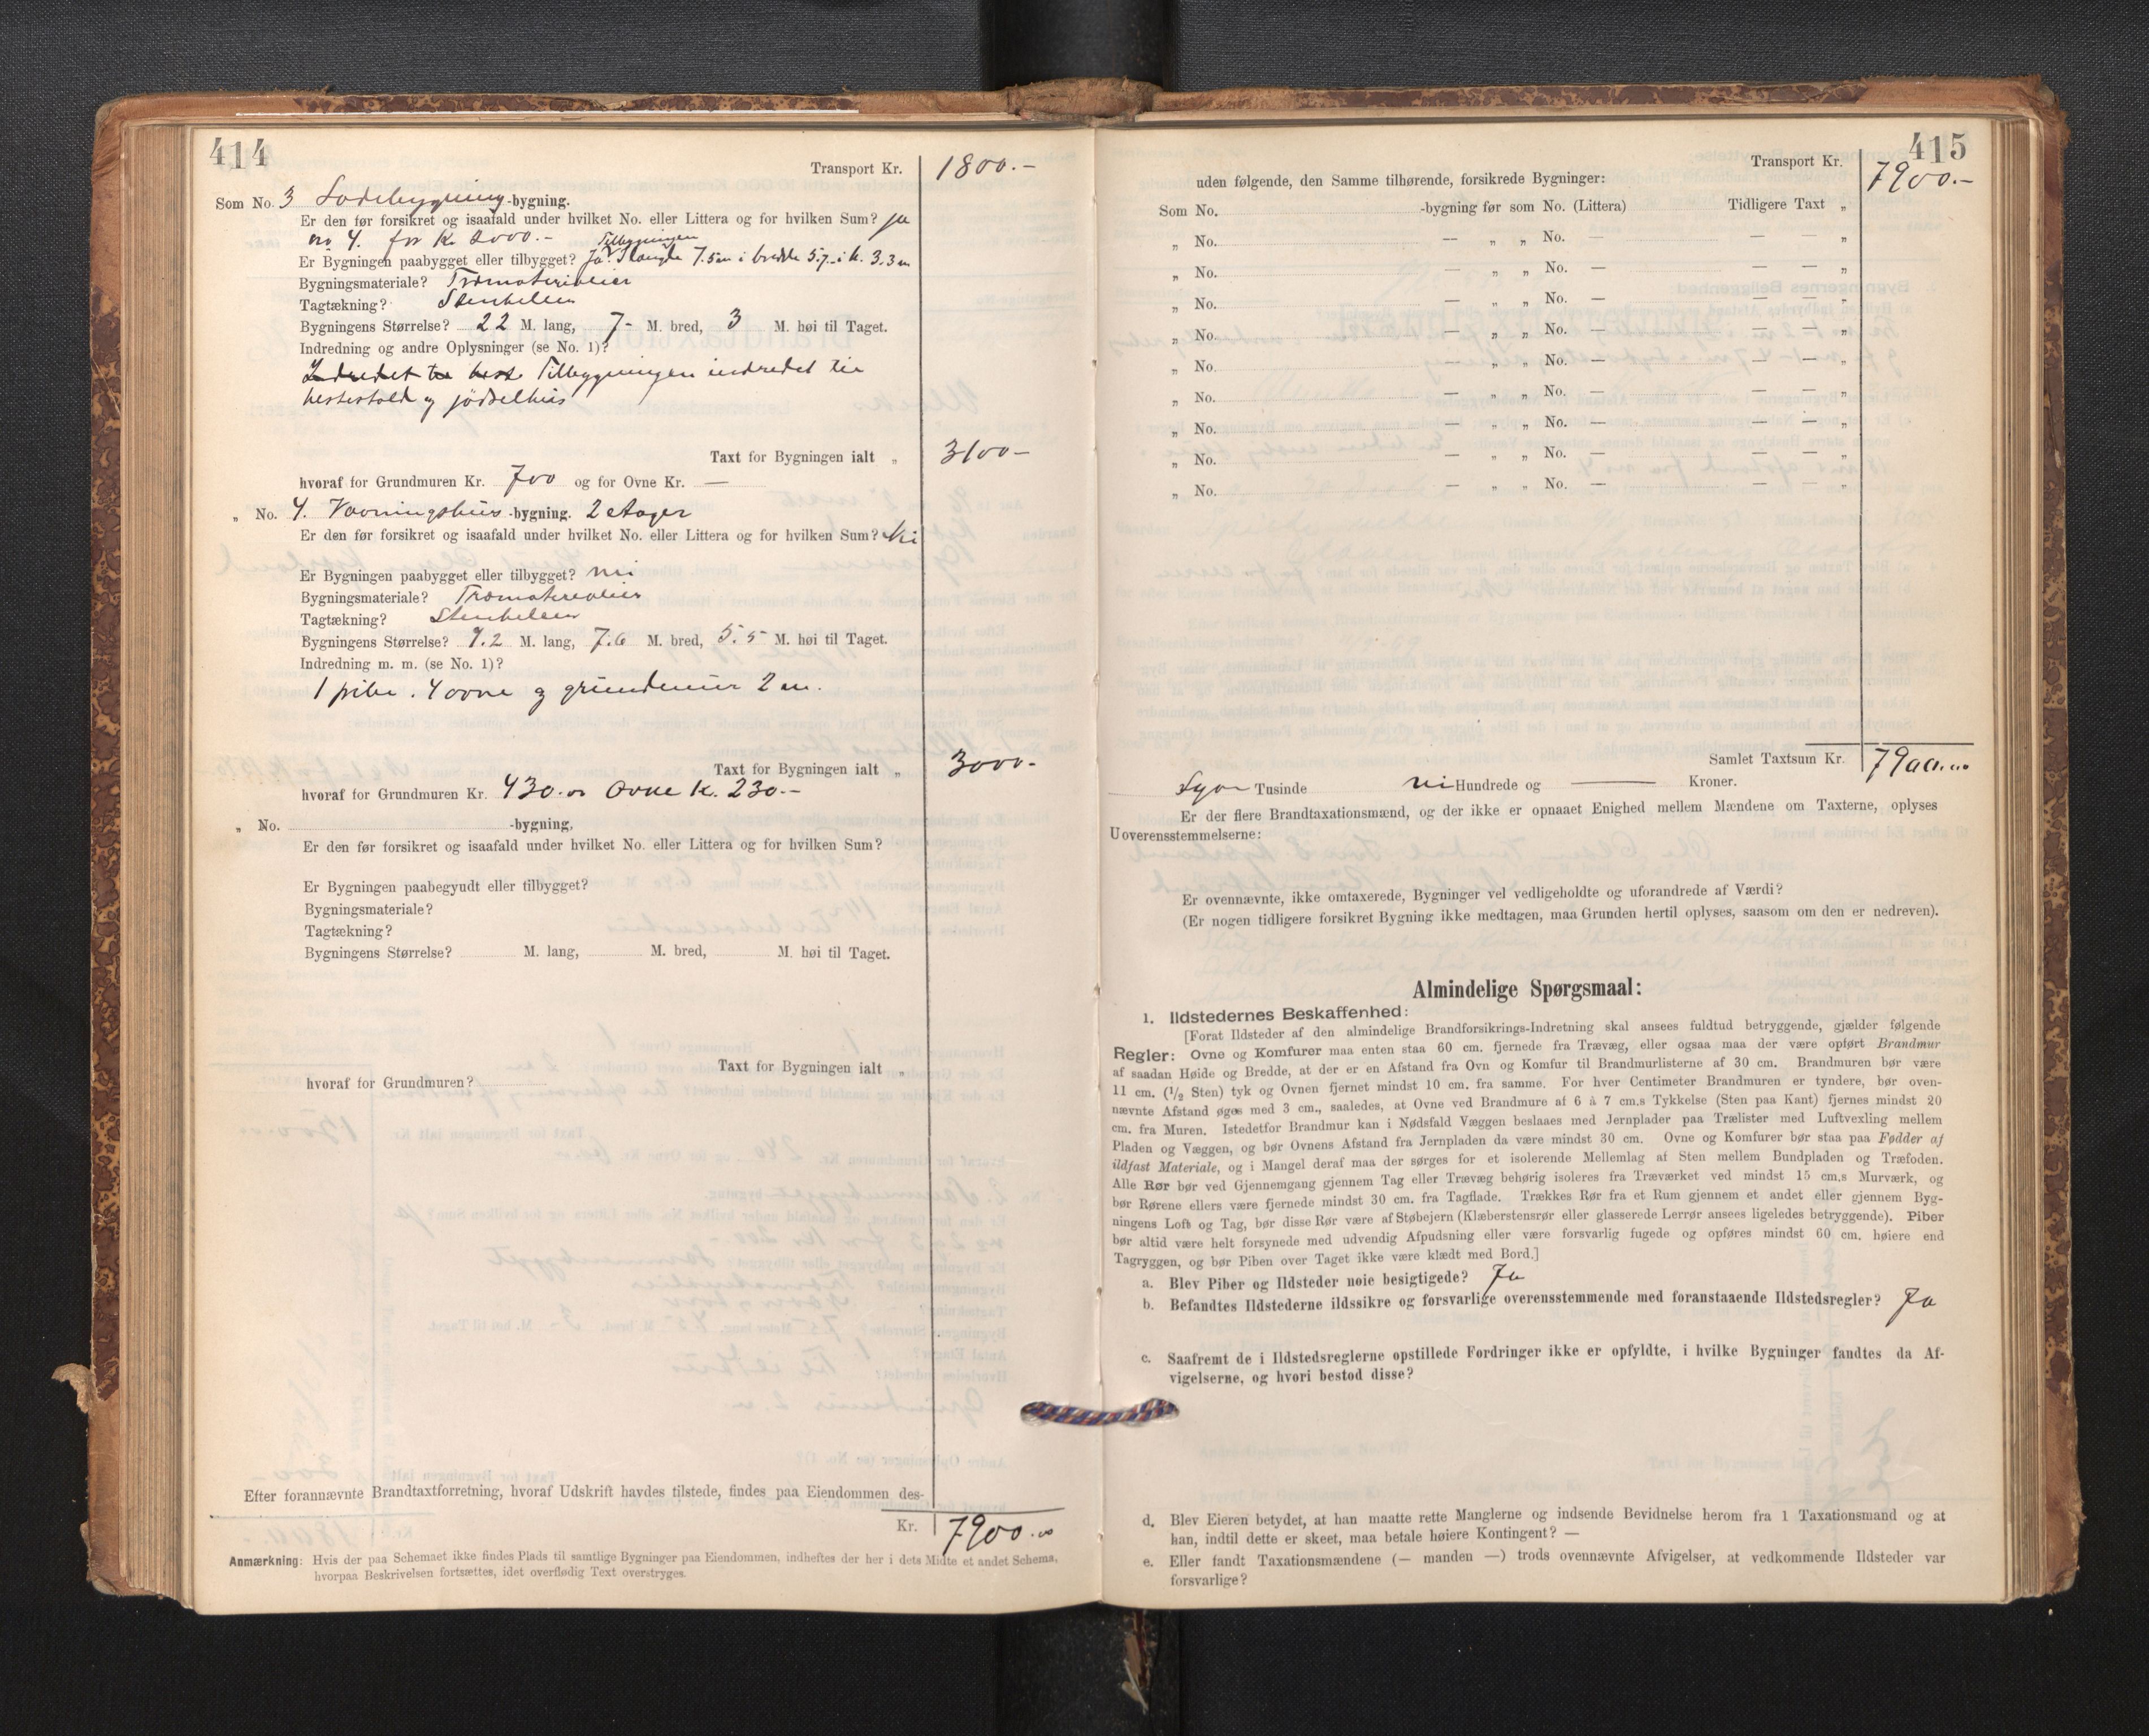 414
Transport Kr. 1800.-
Som No. 3 Lodebygning -bygning.
Er den før forsikret og isaafald under hvilket No. eller Littera og for hvilken Sum? ja
no 4. for Kr. 2000.-
Tilbygningen
Er Bygningen paabygget eller tilbygget? Ja. I længde 7.5m i bredde 5.7 - i h. 3.3 m
Bygningsmateriale? Træmaterialier
Tagtækning? Stenheller
Bygningens Størrelse? 22 M. lang, 7- M. bred, 3 M. høi til Taget.
Indredning og andre Oplysninger (se No. 1)?
Indredet til hest Tilbygningen indredet til
hestestald og jødselhus
Taxt for Bygningen ialt „ 3100-
hvoraf for Grundmuren Kr. 700 og for Ovne Kr. —
„ No. 4. Vaaningshus -bygning. 2 etager
Er den før forsikret og isaafald under hvilket No. eller Littera og for hvilken Sum? Nei
Er Bygningen paabygget eller tilbygget? nei
Bygningsmateriale? Træmaterialier
Tagtækning? Stenheller
Bygningens Størrelse? 9.2 M. lang, 7.6 M. bred, 5.5 M. høi til Taget.
Indredning m. m. (se No. 1)?
1 pibe. 4 ovne og grundmur 2 m.
Taxt for Bygningen ialt „ 3000.-
hvoraf for Grundmuren Kr. 430.00 Ovne Kr. 230.-
„ No. -bygning,
Er den før forsikret og isaafald under hvilket No. eller Littera og for hvilken Sum?
Er Bygningen paabegyndt eller tilbygget?
Bygningsmateriale?
Tagtækning?
Bygningens Størrelse? M. lang, M. bred, M. høi til Taget.
Taxt for Bygningen ialt „
hvoraf for Grundmuren?
Efter forannævnte Brandtaxtforretning, hvoraf Udskrift havdes tilstede, findes paa Eiendommen des-
Kr. 7900.00
Anmærkning: Hvis der paa Schemaet ikke findes Plads til samtlige Bygninger paa Eiendommen, indheftes der her i dets Midte et andet Schema,
hvorpaa Beskrivelsen fortsættes, idet overflødig Text overstryges.
415
Transport Kr. 7900.-
uden følgende, den Samme tilhørende, forsikrede Bygninger:
Som No. -bygning før som No. (Littera) Tidligere Taxt „
„ No. — „ „ No. — — — „
„ No. — „ „ No. — — — „
„ No. — „ „ No. — — — „
„ No. — „ „ No. — — — „
„ No. — „ „ No. — — — „
„ No. — „ „ No. — — — „
„ No. — „ „ No. — — — „
„ No. — „ „ No. — — — „
„ No. — „ „ No. — — — „
Samlet Taxtsum Kr. 7900.00
Syv Tusinde ni Hundrede og — Kroner.
Er der flere Brandtaxationsmænd, og der ikke er opnaaet Enighed mellem Mændene om Taxterne, oplyses
Uoverensstemmelserne:
Er ovennævnte, ikke omtaxerede, Bygninger vel vedligeholdte og uforandrede af Værdi?
(Er nogen tidligere forsikret Bygning ikke medtagen, maa Grunden hertil oplyses, saasom om den er nedreven).
Almindelige Spørgsmaal:
1. Ildstedernes Beskaffenhed:
[Forat Ildsteder af den almindelige Brandforsikrings-Indretning skal ansees fuldtud betryggende, gjælder følgende
Regler: Ovne og Komfurer maa enten staa 60 cm. fjernede fra Trævæg, eller ogsaa maa der være opført Brandmur
af saadan Høide og Bredde, at der er en Afstand fra Ovn og Komfur til Brandmurlisterne af 30 cm. Brandmuren bør være
11 cm. (1/2 Sten) tyk og Ovnen fjernet mindst 10 cm. fra samme. For hver Centimeter Brandmuren er tyndere, bør oven-
nævnte Afstand øges med 3 cm., saaledes, at Ovne ved Brandmure af 6 à 7 cm.s Tykkelse (Sten paa Kant) fjernes mindst 20
cm. fra Muren. Istedetfor Brandmur kan i Nødsfald Væggen beslaaes med Jernplader paa Trælister med Luftvexling mellem
Pladen og Væggen, og bør Ovnens Afstand fra Jernpladen da være mindst 30 cm. Ovne og Komfurer bør staa paa Fødder af
ildfast Materiale, og i Mangel deraf maa der sørges for et isolerende Mellemlag af Sten mellem Bundpladen og Træfoden.
Alle Rør bør ved Gjennemgang gjennem Tag eller Trævæg behørig isoleres fra Træværket ved mindst 15 cm.s Murværk, og
bør Rørene ellers være fjernede mindst 30 cm. fra Tagflade. Trækkes Rør fra et Rum gjennem et andet eller gjennem Byg-
ningens Loft og Tag, bør disse Rør være af Støbejern (Klæberstensrør eller glasserede Lerrør ansees ligeledes betryggende). Piber
bør altid være helt forsynede med udvendig Afpudsning eller være forsvarlig fugede og opføres mindst 60 cm. høiere end
Tagryggen, og bør Piben over Taget ikke være klædt med Bord.]
a. Blev Piber og Ildsteder nøie besigtigede? Ja
b. Befandtes Ildstederne ildssikre og forsvarlige overensstemmende med foranstaaende Ildstedsregler? Ja
c. Saafremt de i Ildstedsreglerne opstillede Fordringer ikke er opfyldte, i hvilke Bygninger fandtes da Af-
vigelserne, og hvori bestod disse?
d. Blev Eieren betydet, at han maatte rette Manglerne og indsende Bevidnelse herom fra 1 Taxationsmand og at
han, indtil dette er skeet, maa betale høiere Kontingent? —
e. Eller fandt Taxationsmændene (— manden —) trods ovennævnte Afvigelser, at vedkommende Ildsteder var
forsvarlige?